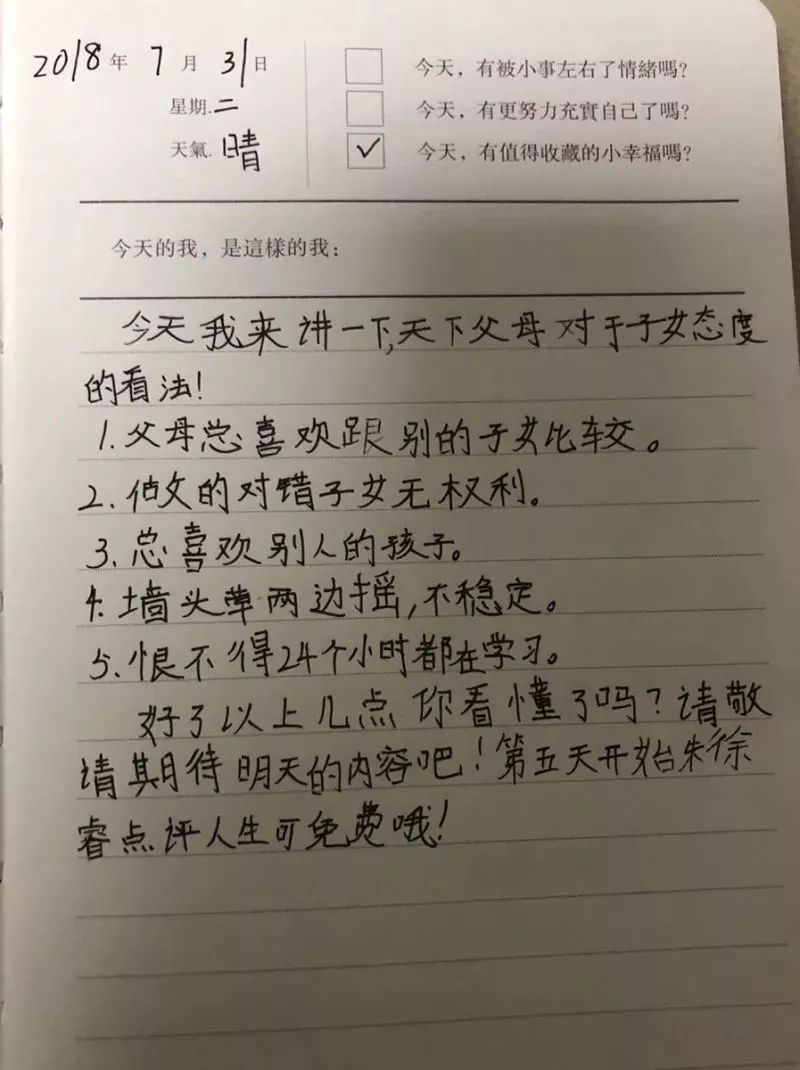 2018年 7月 31日
今天，有被小事左右了情緒嗎?
星期.二
今天，有更努力充實自己了嗎?
天氣.晴
✓ 今天，有值得收藏的小幸福嗎?
今天的我，是這樣的我：
今天我来讲一下,天下父母对于子女态度
的看法!
1.父母总喜欢跟别的子女比较。
2.做的对错子女无权利。
3.总喜欢别人的孩子。
4.墙头草两边摇,不稳定。
5.恨不得24个小时都在学习。
好了以上几点你看懂了吗?请敬
请期待明天的内容吧!第五天开始朱徐
睿点评人生可免费哦!